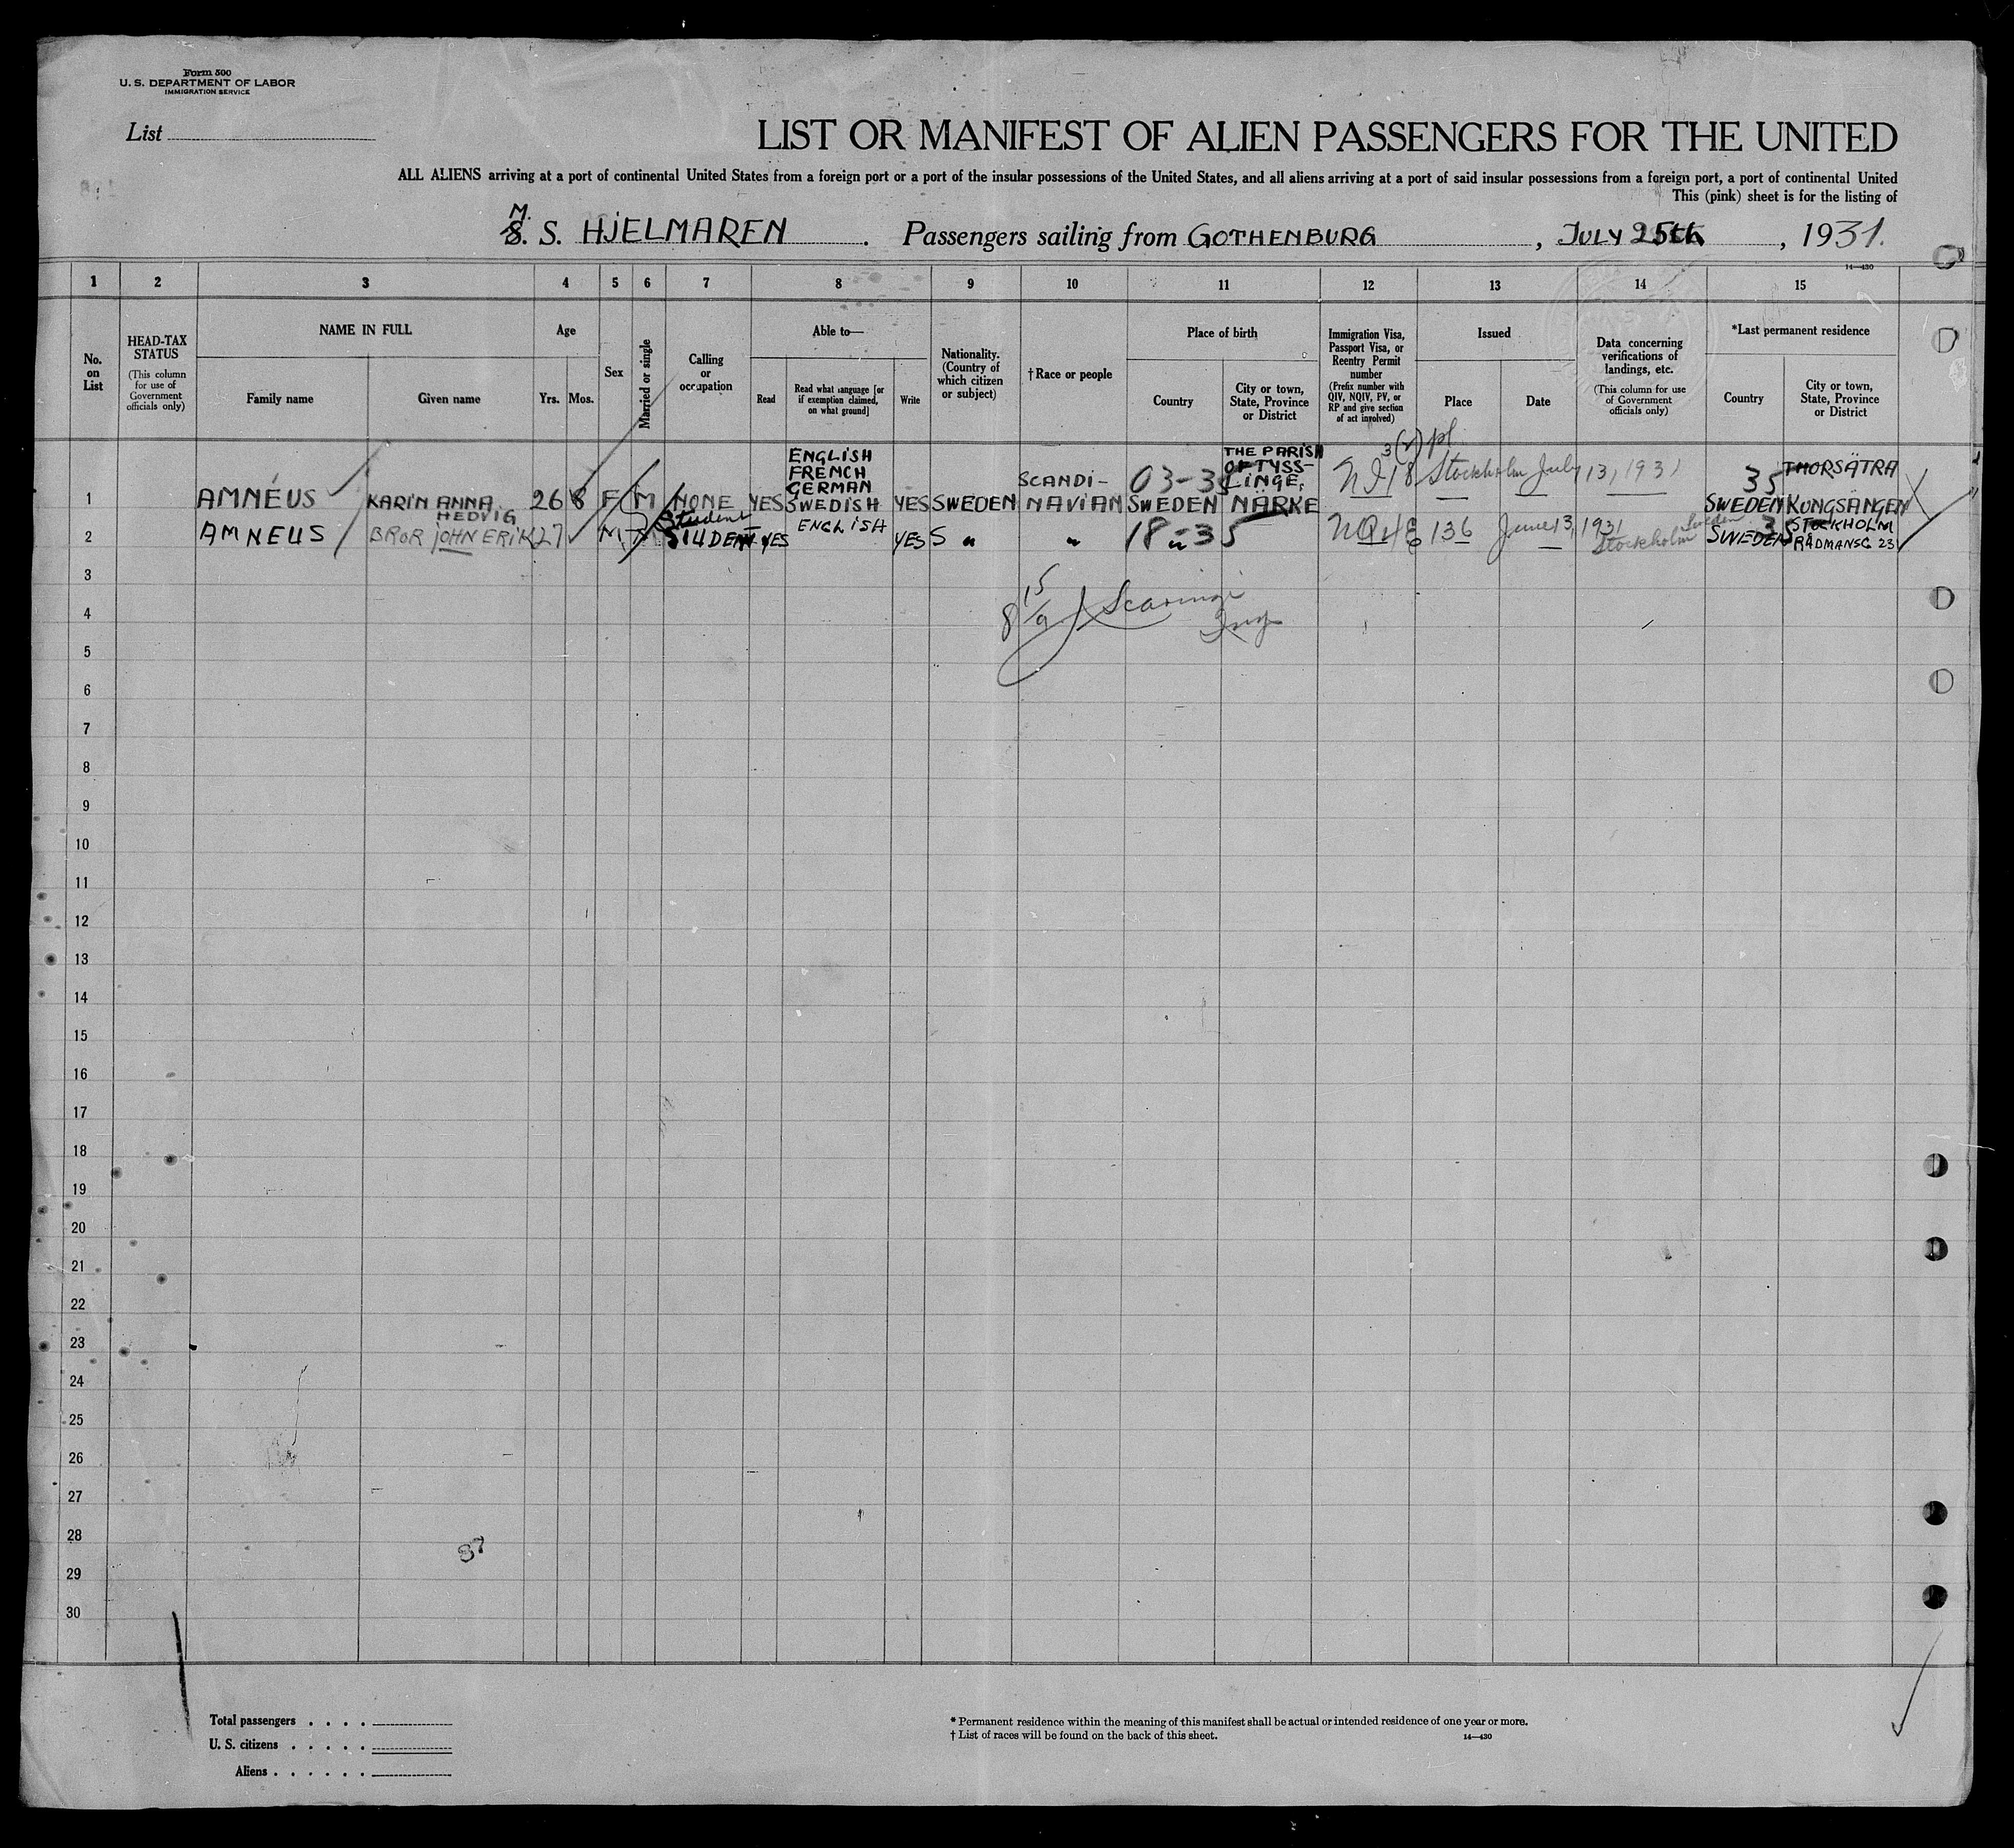 Form 500
U. S. DEPARTMENT OF LABOR
IMMIGRATION SERVICE
List
LIST OR MANIFEST OF ALIEN PASSENGERS FOR THE UNITED
ALL ALIENS arriving at a port of continental United States from a foreign port or a port of the insular possessions of the United States, and all aliens arriving at a port of said insular possessions from a foreign port, a port of continental United
This (pink) sheet is for the listing of
M.
S. S. HJELMAREN . Passengers sailing from GOTHENBURG , JULY 25th , 1931.
14—430
1 2 3 4 5 6 7 8 9 10 11 12 13 14 15
No. on List
HEAD-TAX STATUS
(This column for use of Government officials only)
NAME IN FULL
Family name
Given name
Age
Yrs.
Mos.
Sex
Married or single
Calling or occupation
Able to—
Read
Read what language [or if exemption claimed, on what ground]
Write
Nationality. (Country of which citizen or subject)
† Race or people
Place of birth
Country
City or town, State, Province or District
Immigration Visa, Passport Visa, or Reentry Permit number
(Prefix number with QIV, NQIV, PV, or RP and give section of act involved)
Issued
Place
Date
Data concerning verifications of landings, etc.
(This column for use of Government officials only)
*Last permanent residence
Country
City or town, State, Province or District
1 AMNÉUS KARIN ANNA HEDVIG 26 8 F M NONE YES ENGLISH FRENCH GERMAN SWEDISH YES SWEDEN SCANDI-NAVIAN 03-35 SWEDEN THE PARISH OF TYSS-LINGE, NÄRKE Stockholm July 13, 1931 35 SWEDEN THORSÄTRA KUNGSÄNGEN
2 AMNEUS BROR JOHN ERIK 27 M Student STUDENT YES ENGLISH YES S " " 18-35 " 136 June 13, 1931 Stockholm Sweden 35 SWEDEN STOCKHOLM RÅDMANSG 23
3
4
5
6
7
8
9
10
11
12
13
14
15
16
17
18
19
20
21
22
23
24
25
26
27
28
29
30
37
Total passengers . . . .
U. S. citizens . . . . .
Aliens . . . . . .
* Permanent residence within the meaning of this manifest shall be actual or intended residence of one year or more.
† List of races will be found on the back of this sheet.
14—430